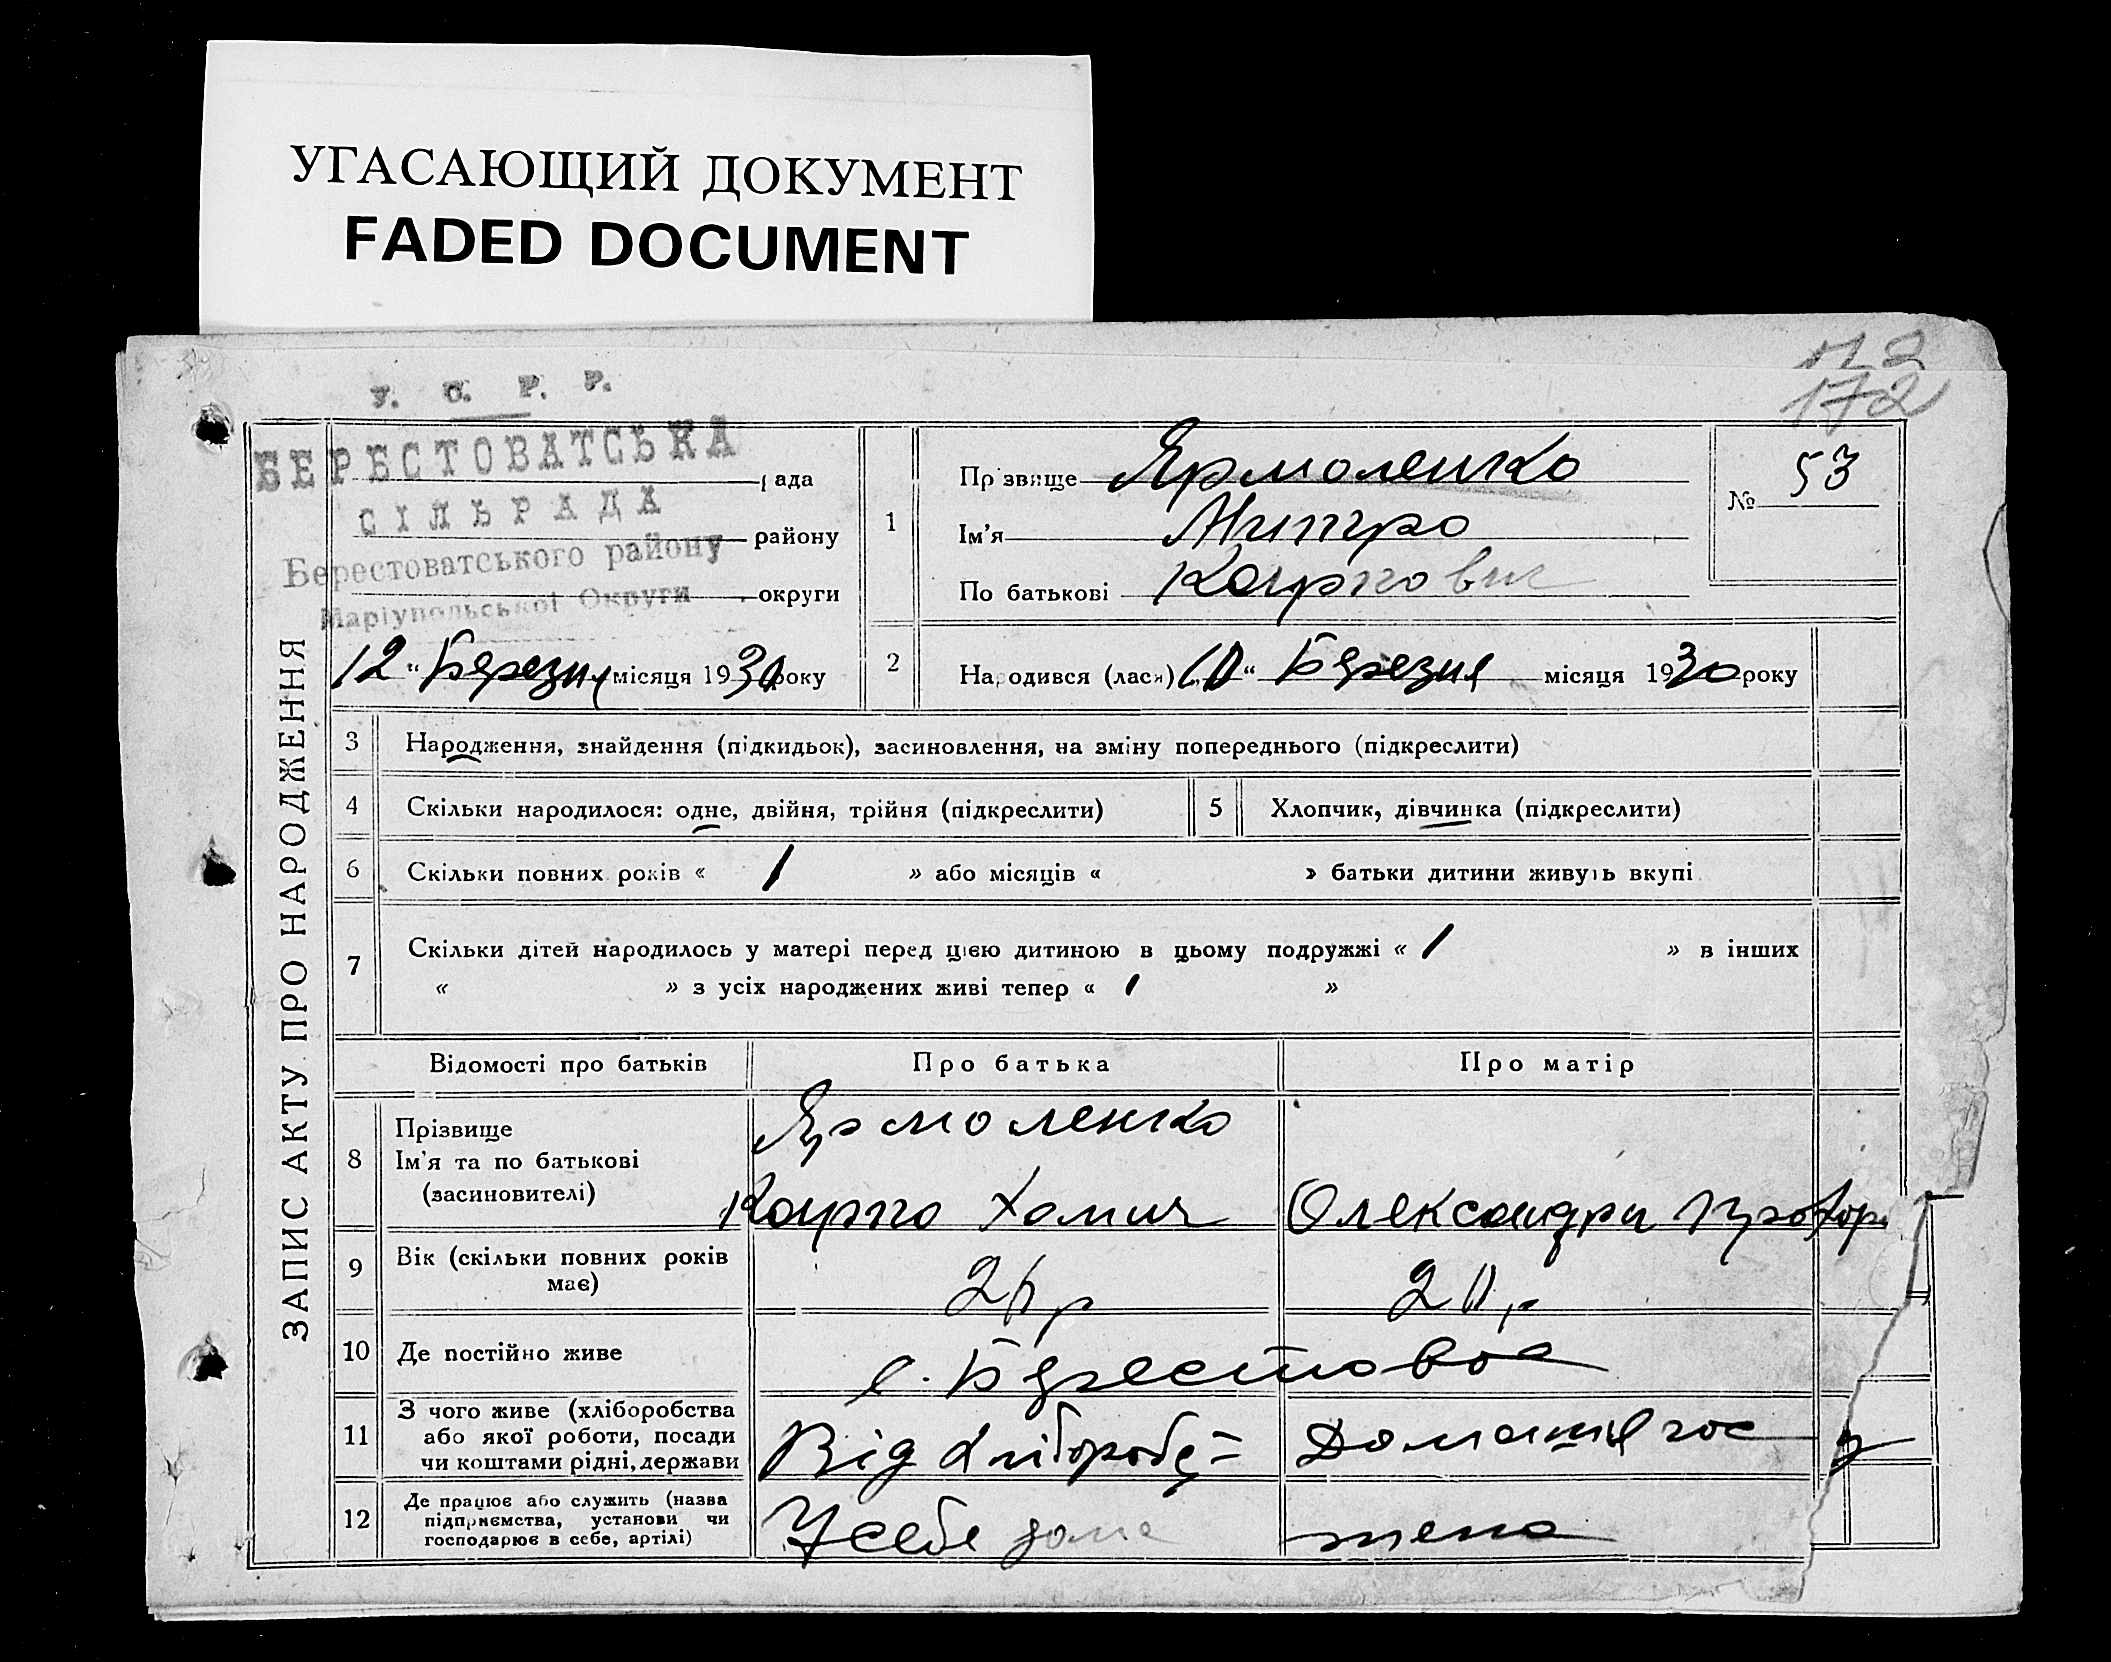 УГАСАЮЩИЙ ДОКУМЕНТ
FADED DOCUMENT
172
У. С. Р. Р.
БЕРЕСТОВАТСЬКА
рада
СІЛЬРАДА
району
Берестоватського району
округи
Маріупольської Округи
12 "Березня місяця 1930 року
ЗАПИС АКТУ ПРО НАРОДЖЕННЯ
1
Прізвище Ярмоленко
Ім'я Дмитро
По батькові Карпович
№ 53
2 Народився (лася) „10" Березня місяця 1930 року
3 Народження, знайдення (підкидьок), засиновлення, на зміну попереднього (підкреслити)
4 Скільки народилося: одне, двійня, трійня (підкреслити)
5 Хлопчик, дівчинка (підкреслити)
6 Скільки повних років « 1 » або місяців « » батьки дитини живуть вкупі
7 Скільки дітей народилось у матері перед цією дитиною в цьому подружжі « 1 » в інших
« » з усіх народжених живі тепер « 1 »
Відомості про батьків Про батька Про матір
8 Прізвище
Ім'я та по батькові
(засиновителі)
Ярмоленко
Карпо Хомич Олександра Прохор
9 Вік (скільки повних років
має)
20р
10 Де постійно живе с. Берестовоє
11 З чого живе (хліборобства
або якої роботи, посади
чи коштами рідні, держави
Від хлібороб Домашня гос
12 Де працює або служить (назва
підприємства, установи чи
господарює в себе, артілі)
У себе дома